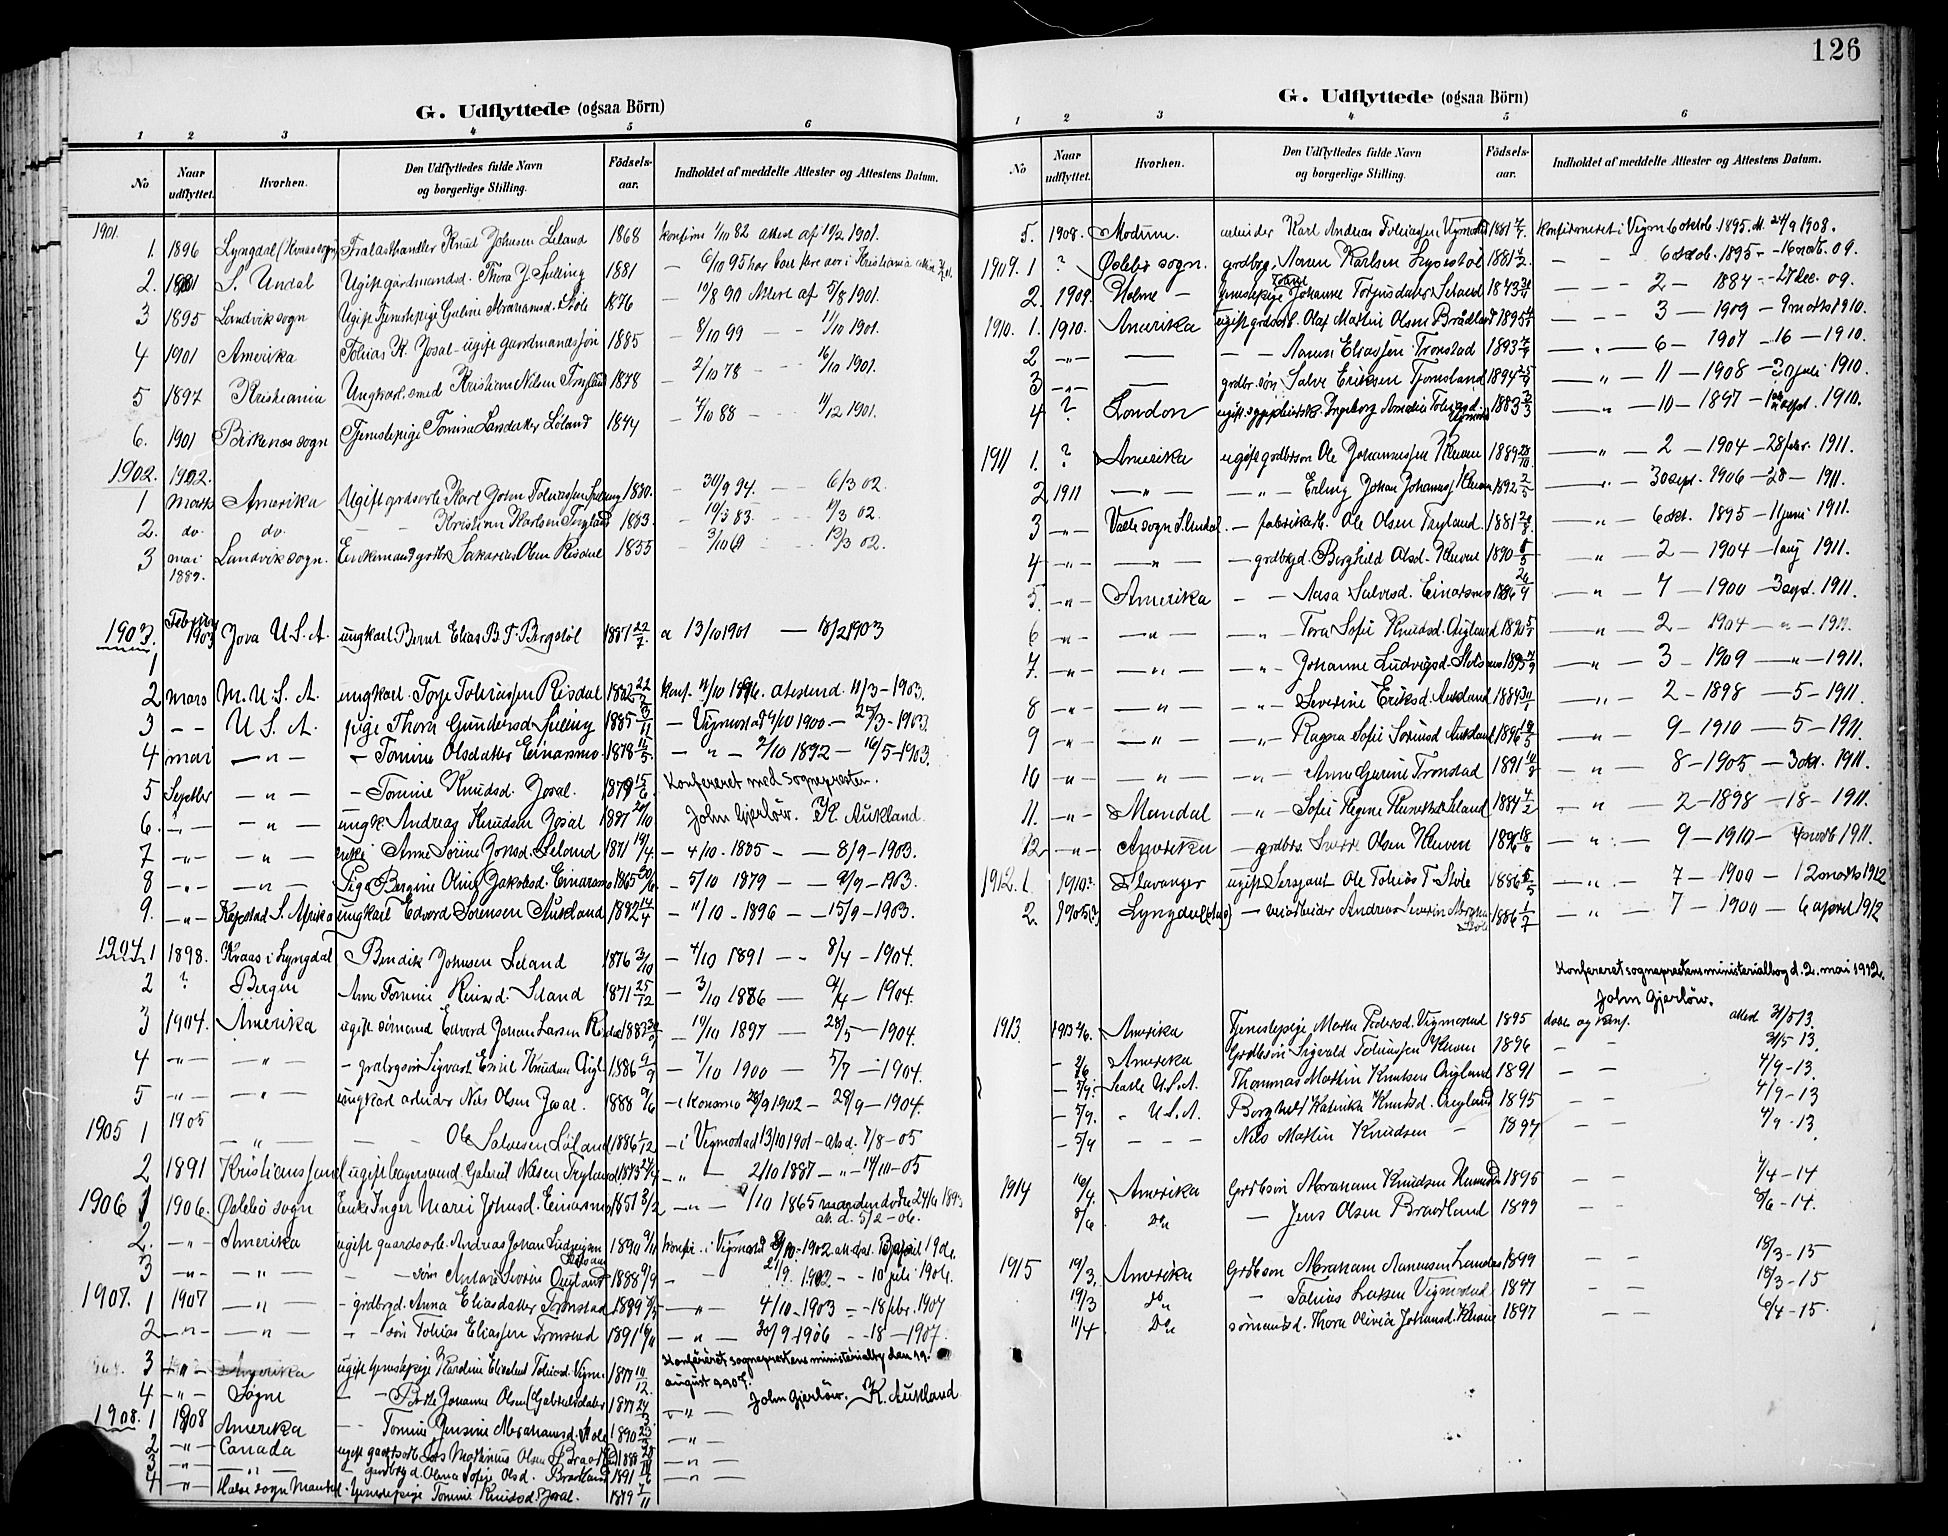 126
G. Udflyttede (ogsaa Börn)
1 2 3 4 5 6
No Naar udflyttet. Hvorhen. Den Udflyttedes fulde Navn og borgerlige Stilling. Födsels-aar. Indholdet af meddelte Attester og Attestens Datum.
1901.
1. 1896 Lyngdal Knud Johnsen Leland 1868 konfirm 1/10 82 attest af 19/2 1901.
2. 1901 S. Undal Ugift gardmandsd. Thora J. Spilling 1881 - 6/10 95 har boet flere aar i Kristiania
3 1895 Landvik sogn Ugift Tjenestepige Gurine Abrahamsd. Stole 1876 - 10/8 90 Attest af 5/8 1901.
4 1901 Amerika Tobias K. Josal - ugift gaardmandssøn 1885 - 8/10 99 - - 11/10 1901.
5 1897 Kristiania Ungkarl. smed Kristian Nilsen Trygland 1878 - 2/10 78 - - 16/10 1901.
6. 1901 Birkenæs sogn Tjenestepige Tomine Larsdatter Løland 1874 - 7/10 88 - - 11/12 1901.
1902. 1902.
1 Marts Amerika Ugift grdsarb. Karl Johan Tobiassen Spilling 1880. - 30/9 94. - - 6/3 02.
2. do. do. - - Kristian Karlsen Trygland 1883. - - 11/3 02.
3 mai 1889. Landvik sogn. Enkemand grdbr. Sakarias Olsen Risdal 1855 - 3/10 69 - - 13/3 02.
1903. 1 Februar 1903 Jova U.S.A. ungkarl Bernt Elias B.T. Bergstøl 1887 22/7. a 13/10 1901 — 18/2 1903
2 Mars M. U.S.A. ungkarl. Torje Tobiassen Risdal 1882 konf. 11/10 1896. attestend. 11/3 - 1903.
3 - - U.S.A. pige Thora Gundersd. Spilling 1885 - Vigmostad 4/10 1900 - 25/3 - 1903.
4 mai — " — - Tomine Olsdatter Einarsmo 1878 - " - 2/10 1892 - 16/5 - 1903.
5 Septbr — " — - Tomine Knudsd. Josal. 1879 15/6. Konfereret med Sognepresten.
6. - " - — " — ungk. Andreas Knudsen Josal 1887 John Gjerløw. K. Aukland.
7 - " - - " - enke Anne Sørine Jonsd. Leland 1871 19/4. - 4/10 - 1885 - — 8/9 - 1903.
8 - " - — " — Pige Bergine Oline Jakobsd. Einarsmo 1865 - 5/10 1879 — 9/9 - 1903.
9. - " - Kapstad S. Afrika ungkarl Edvard Sørensen Aukland 1882 14/4 - 11/10 - 1896 - — 15/9 - 1903.
1904. 1 1898. Kvaas i Lyngdal Bendik Johnsen Leland 1876 3/10 - 4/10 1891 - - 8/4 - 1904.
2 ? Bergen Ane Tomine Leland 1871 25/12 - 3/10 1886 — 9/4 - 1904.
3 1904. Amerika ugift sömand Edvard Johan Larsen Risdal 1883 - 10/10 1897 — 28/5 — 1904.
4 - " - - " - - grdbrgsøn Sigvart Emil Knudsen Øigl. 1886 9/9 - 7/10 1900 — 5/7 — 1904.
5 - " - - " - ungkarl arbeider Nils Olsen Josal. 1888 9/6 - i Konsmo 28/9 1902 - 28/9 — 1904.
1905 1 1905 — " — - - Ole Salvesen Løland 1886 1/12 - i Vigmostad 13/10 1901 - atd. 7/8 - 05
2 1891 Kristianssand ugift Gabriel Nilsen Trygland 1873 - " - 2/10 1887 - " - 14/10 - 05
1906 1 1906. Øslebö sogn Enke Inger Marie Johnsd. Einarsmo 1851 3/12 - " - 1/10 1865 manden døde 24/6 1893 at. d. 5/2 - 06.
2. - " - Amerika ugift gaardsarb. Andreas Johan Ludvigsen 1890 konfir. i Vigmostad 1902 april 1906.
3 - " - - " - - - søn Antoni Severin Øigland 1888 9/9 - - 21/9. 1902 - - 10 juli 1906.
1907. 1 1907 — " — - grdbrgd. Anna Eliasdatter Tronstad 1889 — " — 4/10 - 1903 - - 18 febr. 1907
2 - " - — " — - " - søn Tobias Eliassen Tronstad 1891 — " — 30/9 - 1906 - - 18 — 1907.
3 - " - Amerika ugift tjenestepige Karoline Elisabet Tobiasd. Vigm. 1877 10/12. Konfereret sogneprestens ministerialbog den 19. august 1907.
4 - " - Søgne - - Johanne Olsen (Gabrielsdatter 1877 24/3. - " - John Gjerløw. K. Aukland.
1908. 1 1908 Amerika - - Tomine Jensine Abrahamsd. Stole 1890 - " -
2 - " - Canada ugift gaardsarb. Lars Mathinius Olsen Braatland 1888 — " —
3 - " - — " — - gaardbrgd. Olena Sofie Olsd. Braatland 1891 — " —
4 - " - Halse sogn Mandal - tjenestepige Tomine Knudsd. Josal. 1879 7/11
G. Udflyttede (ogsaa Börn)
1 2 3 4 5 6
No Naar udflyttet. Hvorhen. Den Udflyttedes fulde Navn og borgerlige Stilling. Födsels-aar. Indholdet af meddelte Attester og Attestens Datum.
5. 1908. Modum. arbeider Karl Andreas Tobiassen Vigmostad 1881 Konfirmeret i Vigm. 6 oktob. 1895. at. 24/9 1908.
1909. 1 ? Øslebø sogn. grdbrg. Aanen Karlsen Lyvestøl 1881 1/2. - - - 6 oktob. 1895 - - 16 09.
2. 1909. Holme - tjenestepige Johanne Torjusdatter Leland 1873 — — — 2 — 1887 — - 27 dec. 09.
1910. 1. 1910. Amerika ugift grdarb. Olaf Martin Olsen Braatland 1895 — — — 3 — 1909 - 9 marts 1910.
2 - " - — - - Aanen Eliassen Tronstad 1893 — " — 6 — 1907 - 16 — 1910.
3 - " - — grdbr. søn Salve Eriksen Tjomsland 1894 — " — 11 — 1908 - 30 juli 1910.
4 ? London ugift Ingeborg Amalia Tobiasd. Vigmost. 1883 — " — 10 — 1897 - sept. 1910.
1911 1. ? Amerika ugift grdbrsøn Ole Johannessen Kleven 1889 — " — 2 — 1904 — 28 febr. 1911.
2 1911 — " — - " - Erling Johan Johanness. Kleven 1892 2/5 — " — 30 sept. 1906 - 28 — 1911.
3 - " - Valle sogn S. Undal. - fabrikarb. Ole Olsen Trygland. 1881 — " — 6 okt. 1895 - 11 juni 1911.
4 - " - — " — - grdbrgd. Borghild Olsd. Kleven 1890 — " — 2 — 1904 — 1 aug 1911.
5. - " - Amerika - - Aasa Salvesd. Einarsmo 1886 — " — 7 — 1900 — 3 sept. 1911.
6 - " - — " — - " - Tora Sofie Knudsd. Øigland 1890 — " — 2 — 1904 — " — 1911.
7. - " - — " — - " - Johanne Ludvigsd. 1895 — " — 3 — 1909 — " — 1911.
8 - " - — " — - " - Severine Eriksd. Aukland 1884 — " — 2 - 1898 — 5 - 1911.
9 - " - — " — - " - Ragna Sofie Sørensd. Aukland 1896 9 - 1910 — 5 - 1911.
10 - " - — " — - " - Anne Gurine Tronstad 1891 — " — 8 - 1905 — 3 okt. 1911.
11. - " - Mandal - " - Sofie Regine Leland 1884 4/2 - " - 2 - 1898 — 18 - 1911.
12 - " - Amerika - grdbrs. Sverre Olsen Kleven 1896 - " - 9 - 1910 — novb 1911.
1912. 1. 1910? Stavanger ugift Sersjant Ole Tobias T. Stole 1886 6/5 - " - 7 - 1900 - 12 marts 1912
2. 1905(?) Lyngdal - Andreas Severin Abraha. Stole 1886 1/7 - " - 7 - 1900 - 6 april 1912
Konfereret sogneprestens ministerialbog d. 2. mai 1912.
John Gjerløw.
1913. 1913 Amerika Tjenestepige Marta Pedersd. Vigmostad 1895 døbt og konf. attest 31/5 13.
Amerika Grdbsøn Sigvald Tobiassen Kleven 1896 - - 31/5 13.
- 5/9. Seatle U.S.A. Thommas Martin Knutsen Øigland 1891 - - 4/9 - 13.
- 5/9. " U.S.A. Borghild Katrika Knutsd. Øigland 1895 - - 4/9 - 13
- 5/9 - - - Nils Martin Knudsen — 1897 - - 4/9 - 13.
1914 16/4. Amerika Grdbsøn Abraham Knudsen 1895 - - 7/4 - 14
8/6 Do — Jens Olsen Braatland 1899 - - 8/6 - 14.
1915 19/3. Amerika Grdbsøn Abraham Aanensen 1899 - - 18/3 - 15
19/3 Do — Tobias Larsen Vigmostad 1897 18/3 - 15
11/4 Do sømandsd. Thora Olivia Johansd. Kleven 1897 - - 8/4 - 15.